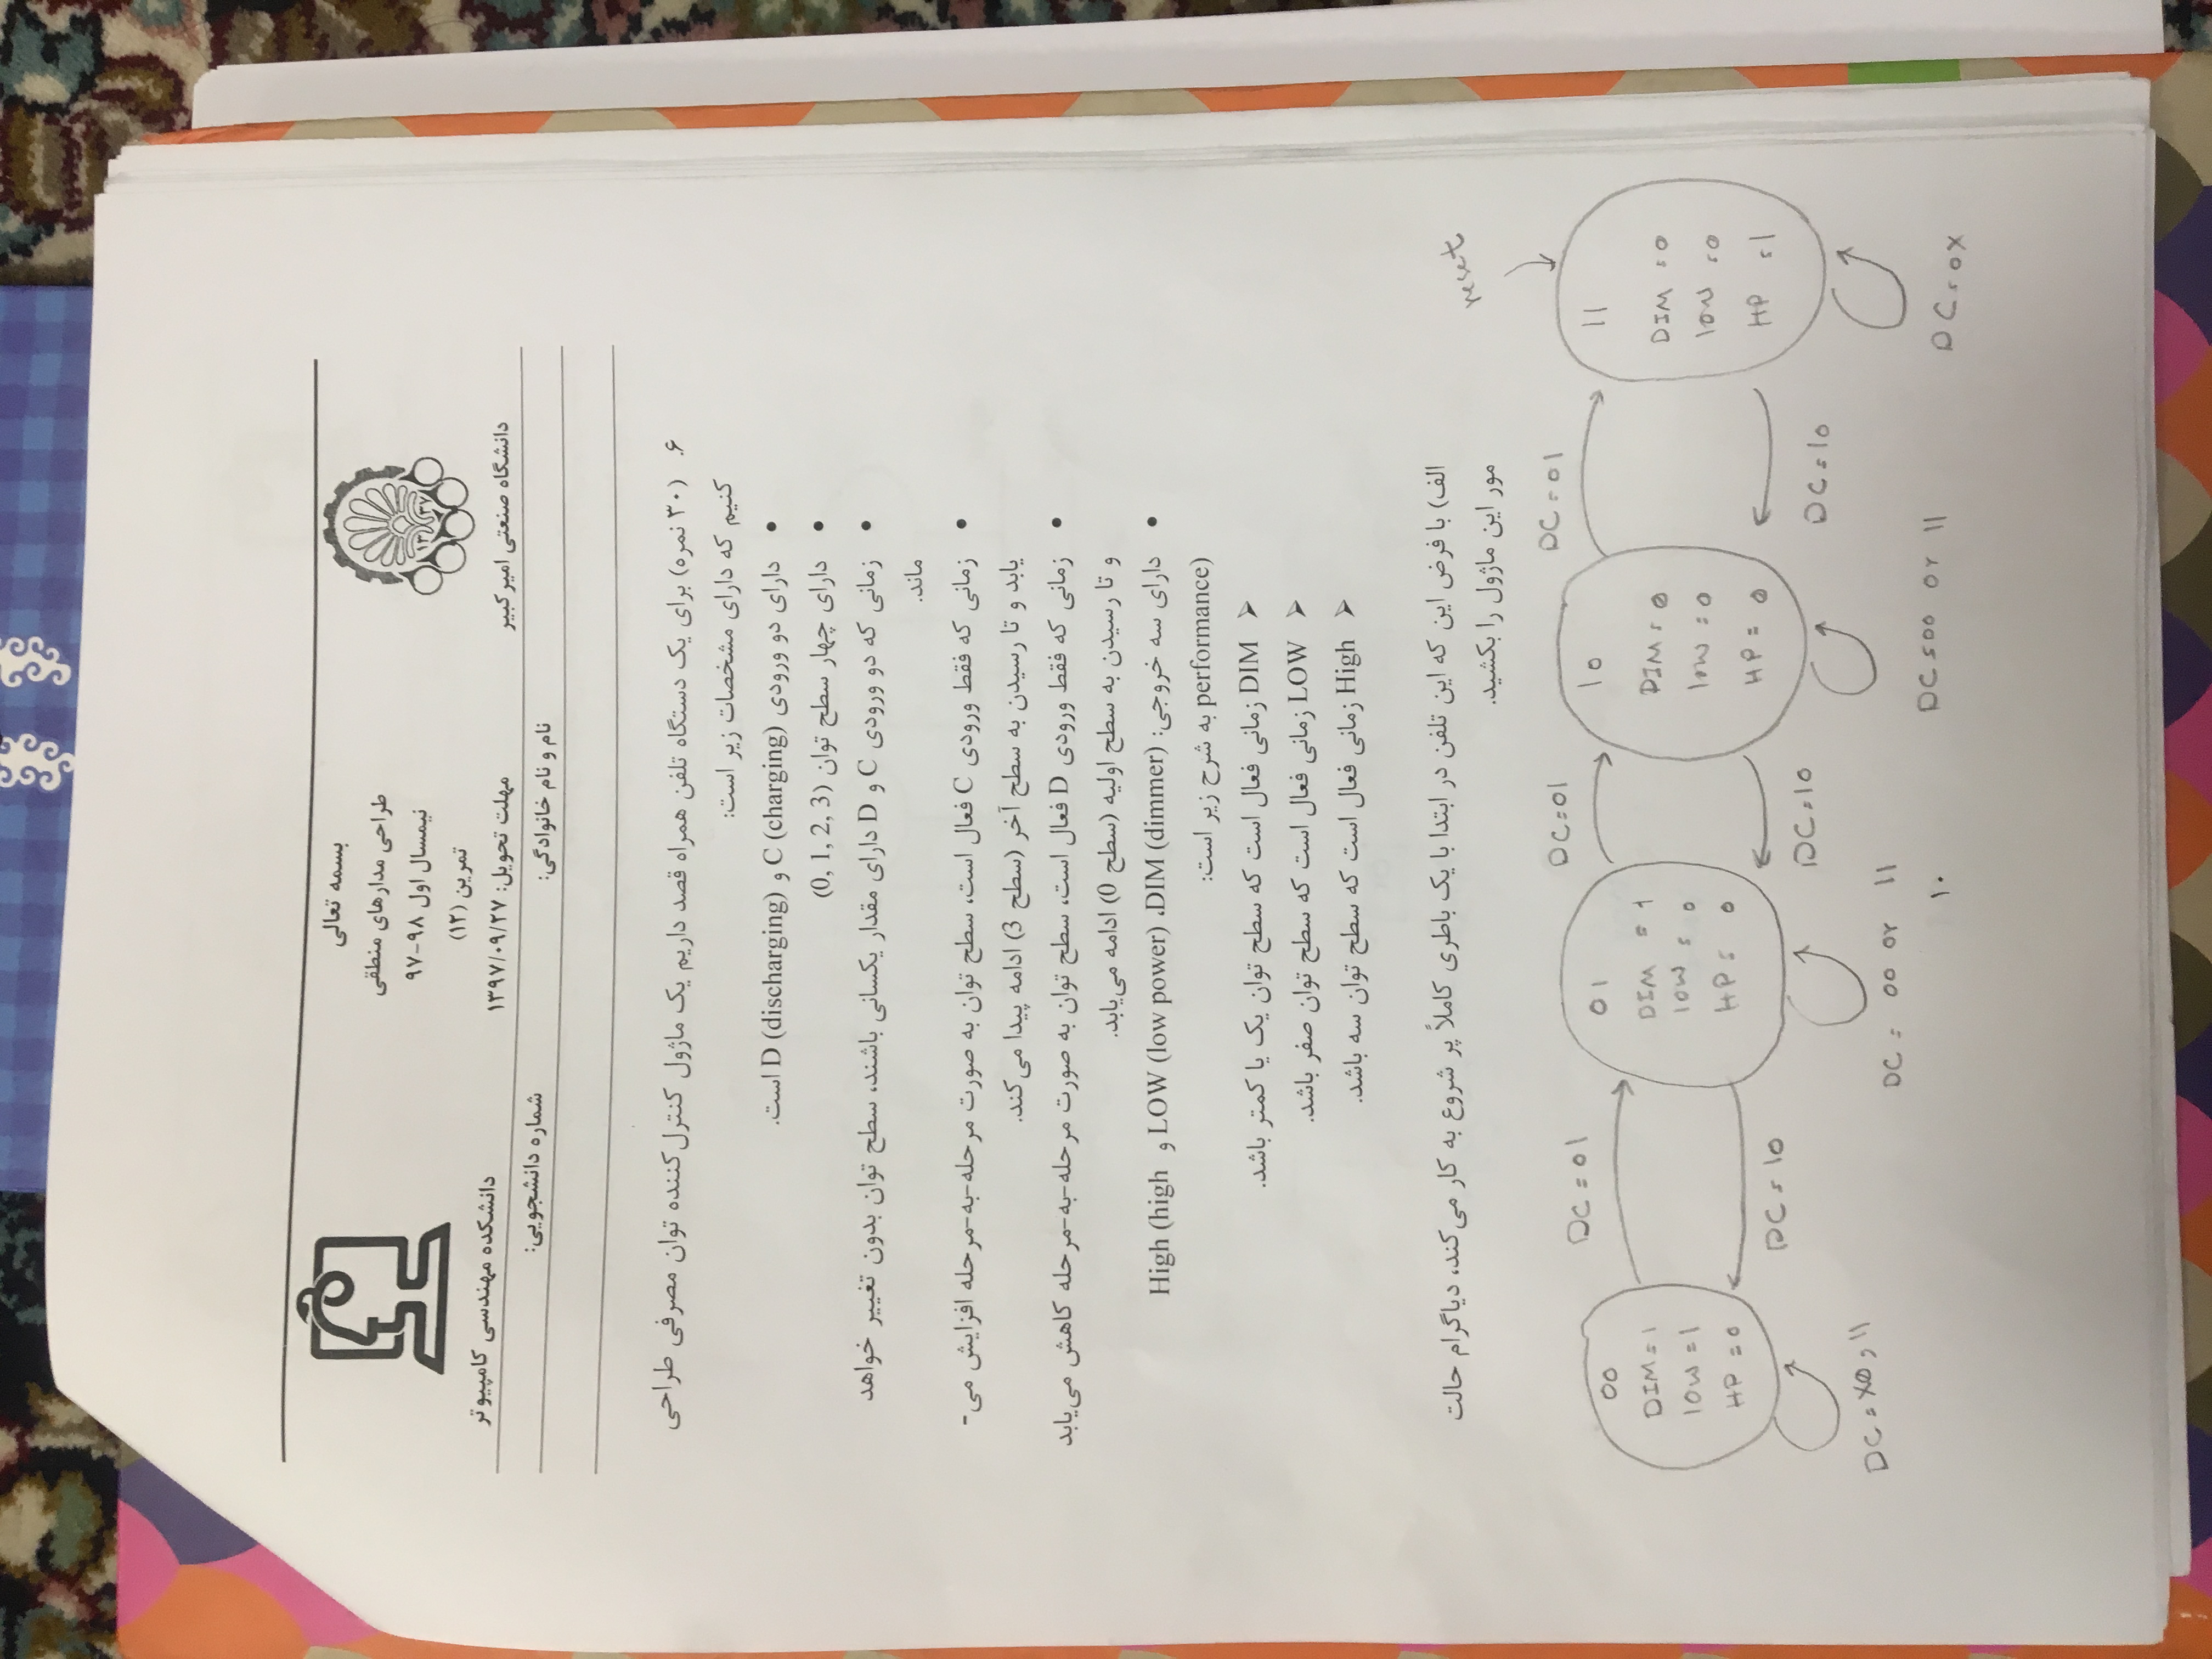 بسمه تعالی
طراحی مدارهای منطقی
نیمسال اول ۹۸-۹۷
تمرین (۱۲)
مهلت تحویل: ۱۳۹۷/۰۹/۲۷
۱۳۳۷
دانشگاه صنعتی امیرکبیر
دانشکده مهندسی کامپیوتر
نام و نام خانوادگی:
شماره دانشجویی:
۶. (۳۰ نمره) برای یک دستگاه تلفن همراه قصد داریم یک ماژول کنترل‌کننده توان مصرفی طراحی
کنیم که دارای مشخصات زیر است:
• دارای دو ورودی C (charging) و D (discharging) است.
• دارای چهار سطح توان (0, 1, 2, 3)
• زمانی که دو ورودی C و D دارای مقدار یکسانی باشند، سطح توان بدون تغییر خواهد
ماند.
• زمانی که فقط ورودی C فعال است، سطح توان به صورت مرحله-به-مرحله افزایش می-
یابد و تا رسیدن به سطح آخر (سطح 3) ادامه پیدا می‌کند.
• زمانی که فقط ورودی D فعال است، سطح توان به صورت مرحله-به-مرحله کاهش می‌یابد
و تا رسیدن به سطح اولیه (سطح 0) ادامه می‌یابد.
• دارای سه خروجی: DIM (dimmer)، LOW (low power) و High (high
performance) به شرح زیر است:
➢ DIM زمانی فعال است که سطح توان یک یا کمتر باشد.
➢ LOW زمانی فعال است که سطح توان صفر باشد.
➢ High زمانی فعال است که سطح توان سه باشد.
الف) با فرض این که این تلفن در ابتدا با یک باطری کاملاً پر شروع به کار می‌کند، دیاگرام حالت
مور این ماژول را بکشید.
reset
DC=01
DC=01
DC=01
00
DIM=1
low=1
HP=0
01
DIM=1
low=0
HP=0
10
DIM=0
low=0
HP=0
11
DIM=0
low=0
HP=1
DC=10
DC=10
DC=10
DC=X0,11
DC=00 or 11
DC=00 or 11
DC=0X
۱۰